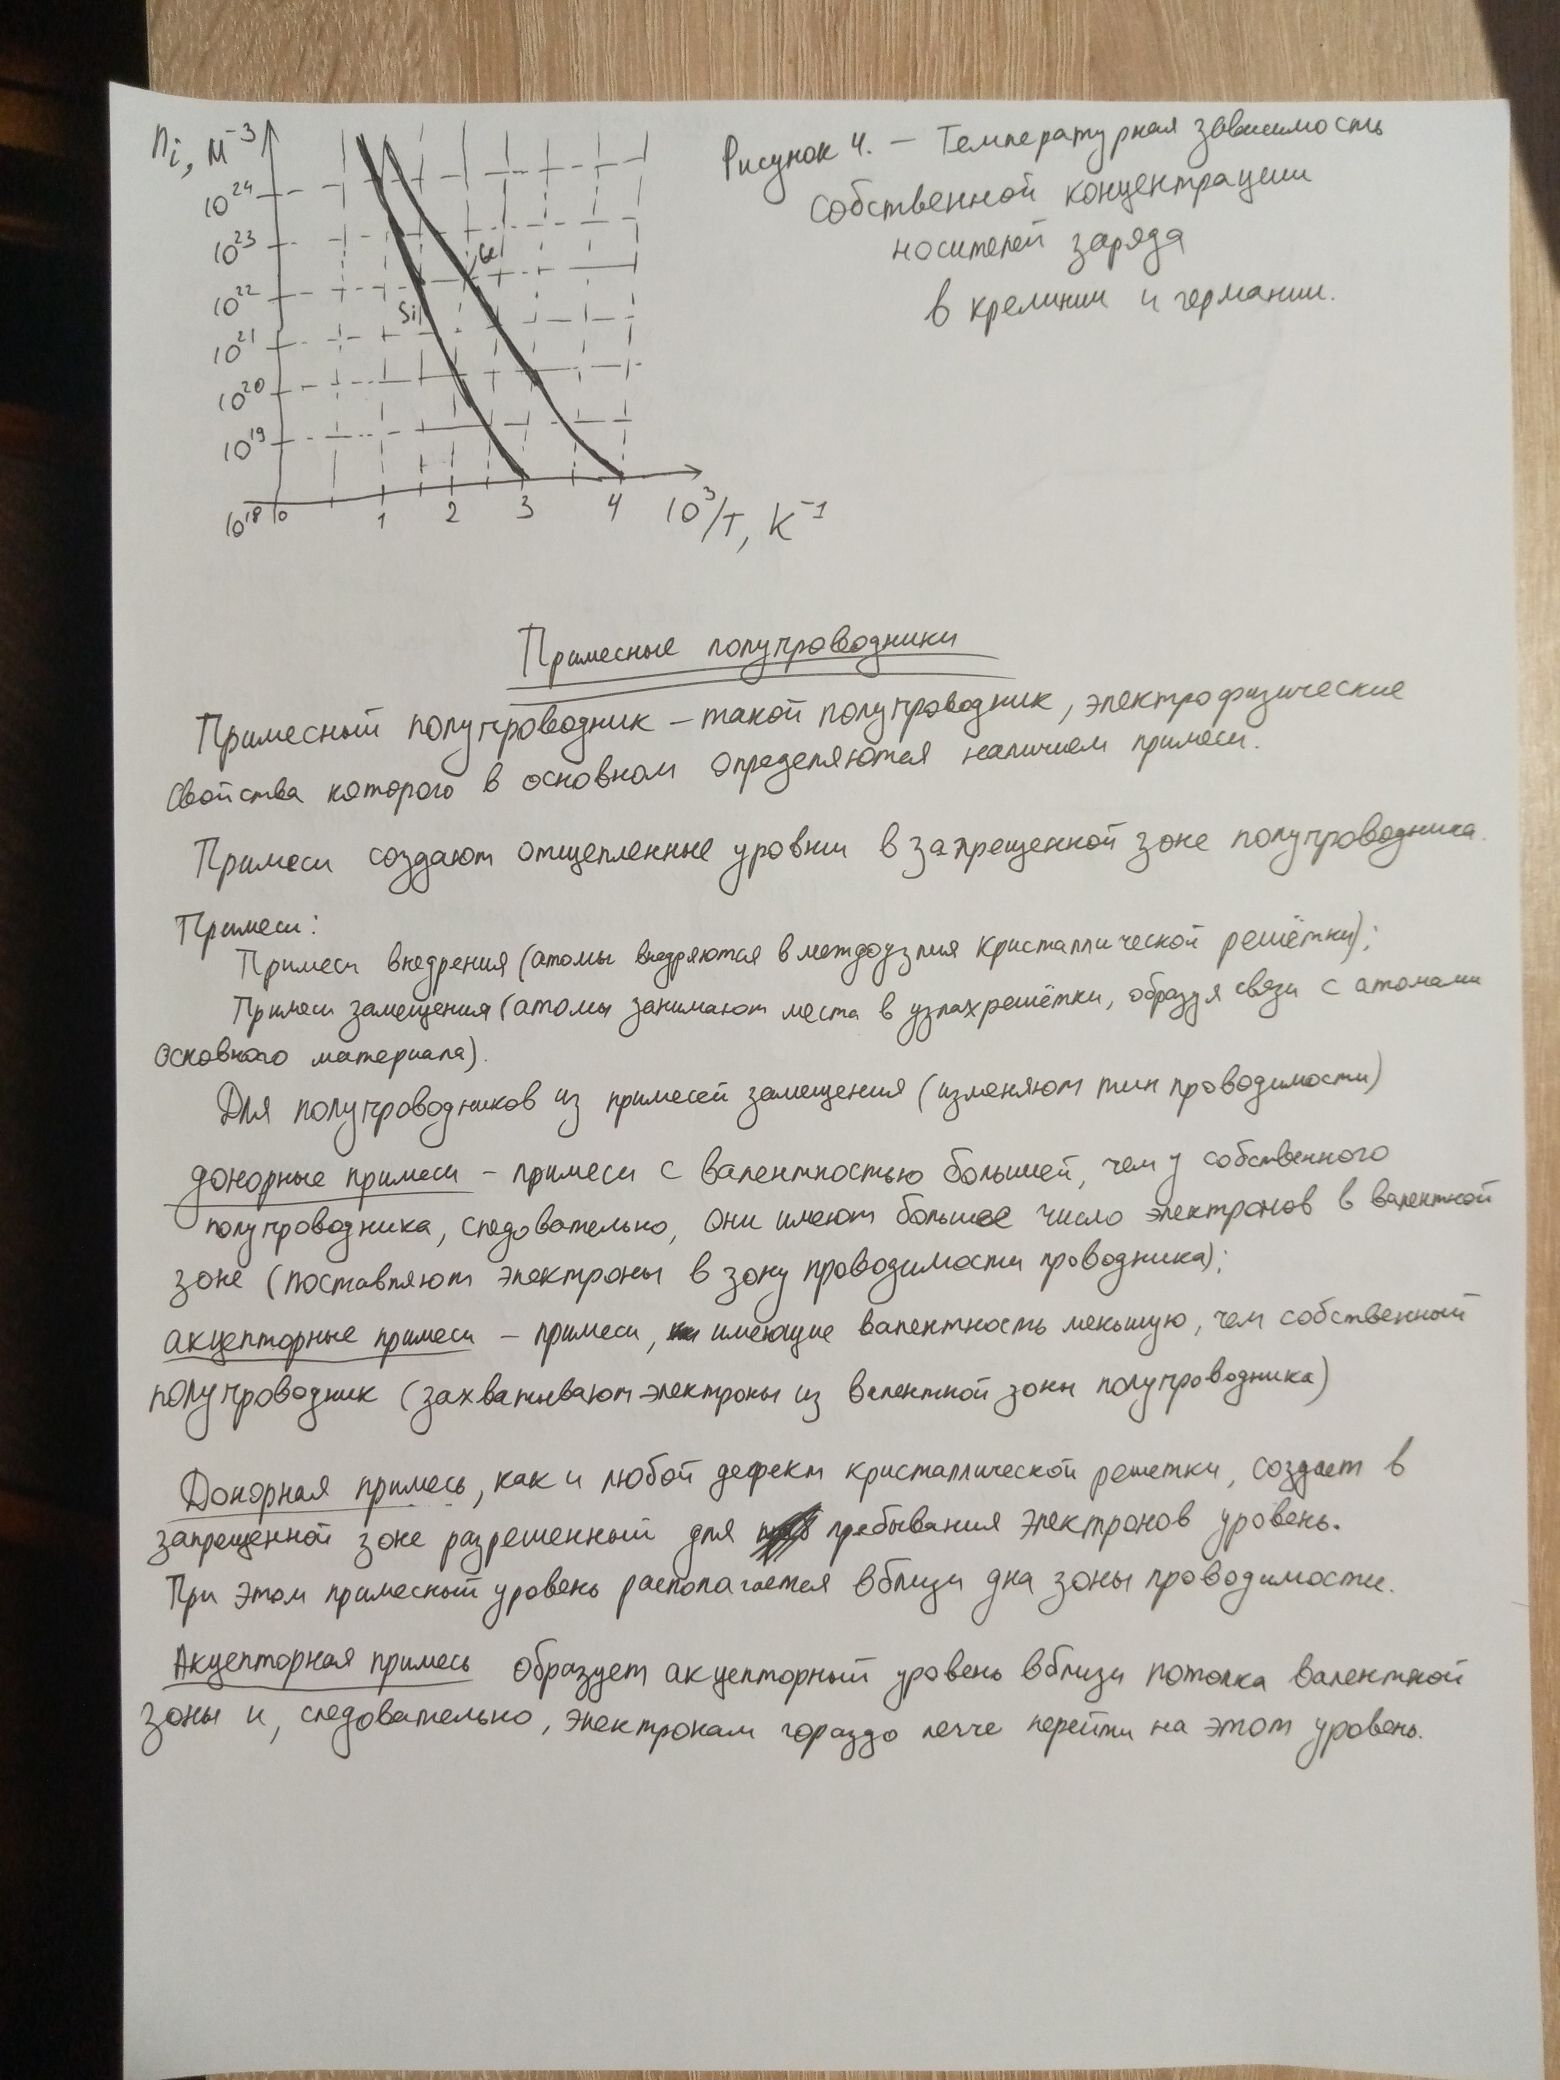 nᵢ, м⁻³
10²⁴
10²³
10²²
10²¹
10²⁰
10¹⁹
10¹⁸
Ge
Si
0 1 2 3 4 10³/T, K⁻¹
Рисунок 4. – Температурная зависимость
собственной концентрации
носителей заряда
в кремнии и германии.
Примесные полупроводники
Примесный полупроводник – такой полупроводник, электрофизические
свойства которого в основном определяются наличием примеси.
Примеси создают отщепленные уровни в запрещенной зоне полупроводника.
Примеси:
Примеси внедрения (атомы внедряются в междоузлия кристаллической решётки);
Примеси замещения (атомы занимают места в узлах решётки, образуя связи с атомами
основного материала).
Для полупроводников из примесей замещения (изменяют тип проводимости)
донорные примеси – примеси с валентностью большей, чем у собственного
полупроводника, следовательно, они имеют большее число электронов в валентной
зоне (поставляют электроны в зону проводимости проводника);
акцепторные примеси – примеси, имеющие валентность меньшую, чем собственный
полупроводник (захватывают электроны из валентной зоны полупроводника)
Донорная примесь, как и любой дефект кристаллической решетки, создает в
запрещенной зоне разрешенный для пребывания электронов уровень.
При этом примесный уровень располагается вблизи дна зоны проводимости.
Акцепторная примесь образует акцепторный уровень вблизи потолка валентной
зоны и, следовательно, электронам гораздо легче перейти на этот уровень.